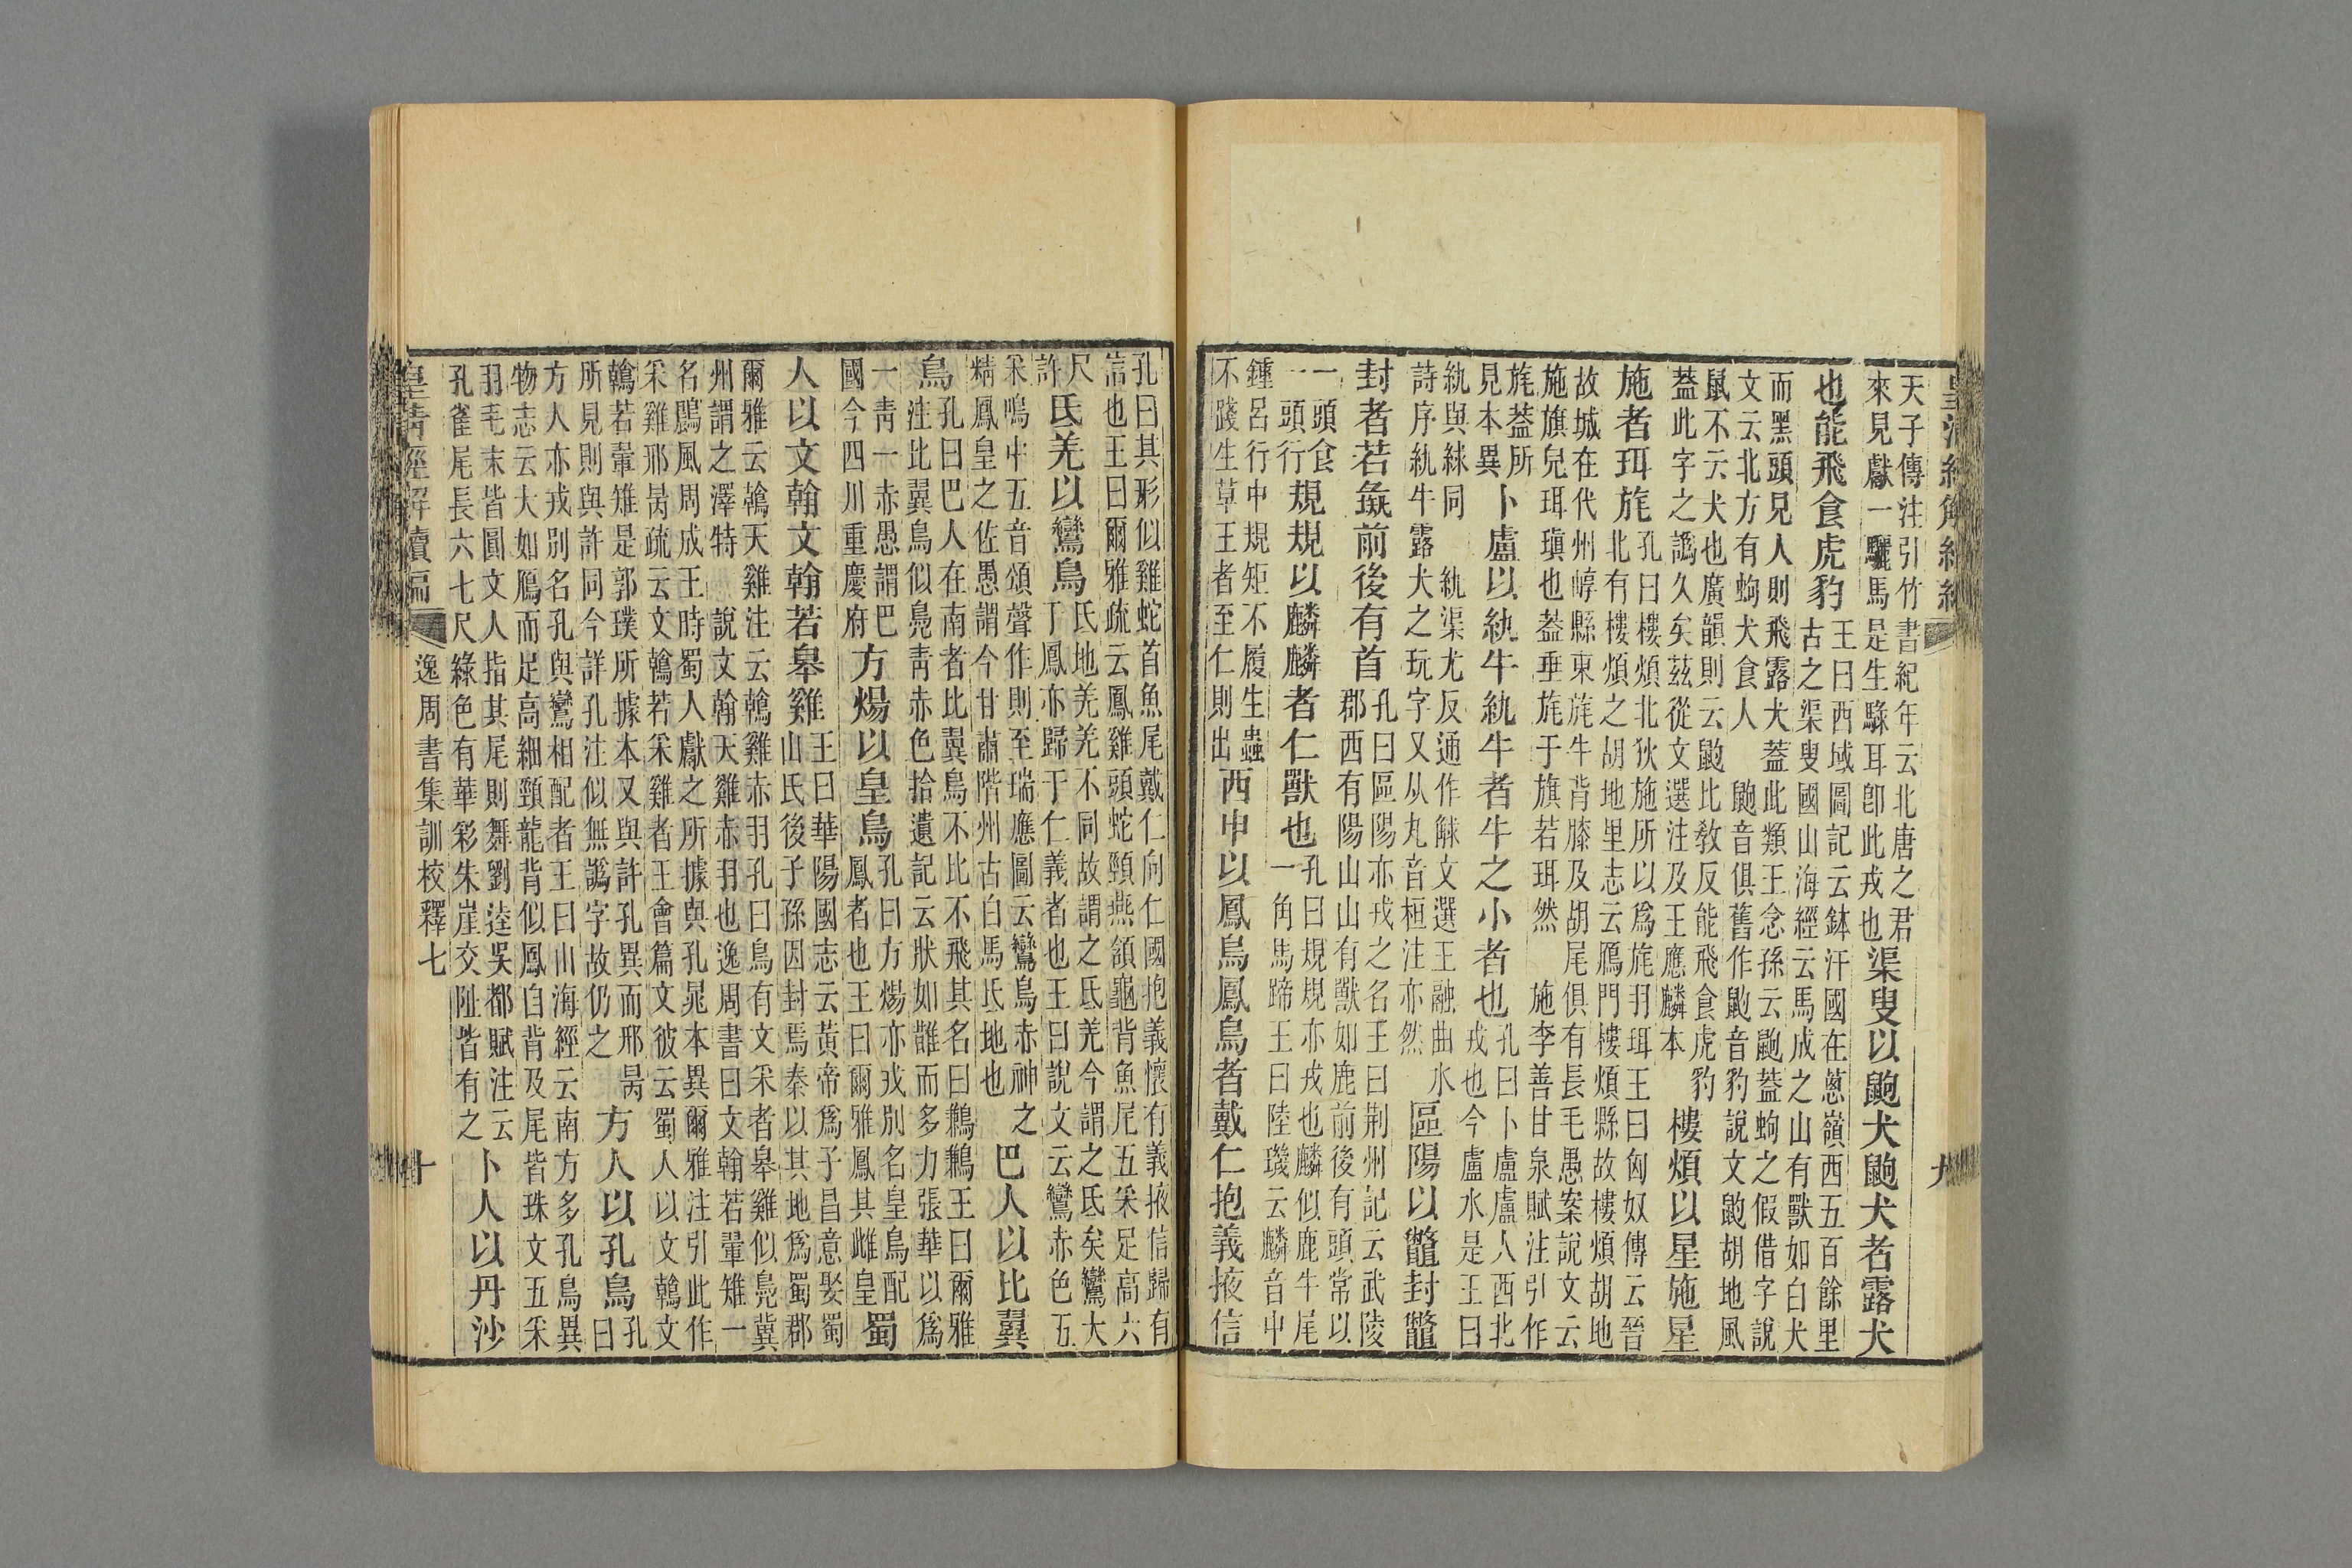 天子傳注引竹書紀年云北唐之君
來見獻一驪馬是生騄耳卽此戎也渠叟以䶂犬䶂犬者露犬
也能飛食虎豹王曰西域圖記云鉢汗國在蔥嶺西五百餘里
古之渠叟國山海經云馬成之山有獸如白犬
而黑頭見人則飛露犬蓋此類王念孫云䶂蓋蚼之假借字說
文云北方有蚼犬食人䶂音俱舊作鼩音豹說文鼩胡地風
鼠不云犬也廣韻則云鼩比教反能飛食虎豹
蓋此字之譌久矣茲從文選注及王應麟本樓煩以星施星
施者珥旄孔曰樓煩北狄施所以爲旄羽珥王曰匈奴傳云晉
北有樓煩之胡地里志云鴈門樓煩縣故樓煩胡地
故城在代州崞縣東旄牛背膝及胡尾俱有長毛愚案說文云
施旗皃珥瑱也蓋垂旄于旗若珥然施李善甘泉賦注引作
旄蓋所
見本異卜盧以紈牛紈牛者牛之小者也孔曰卜盧盧人西北
戎也今盧水是王曰
紈與絿同紈渠尤反通作觩文選王融曲水
詩序紈牛露犬之玩字又从丸音桓注亦然區陽以鼈封鼈
封者若彘前後有首孔曰區陽亦戎之名王曰荆州記云武陵
郡西有陽山山有獸如鹿前後有頭常以
一頭食
一頭行規規以麟麟者仁獸也孔曰規規亦戎也麟似鹿牛尾
一角馬蹄王曰陸璣云麟音中
鍾呂行中規矩不履生蟲
不踐生草王者至仁則出西申以鳳鳥鳳鳥者戴仁抱義掖信
九
孔曰其形似雞蛇首魚尾戴仁向仁國抱義懷有義掖信歸有
信也王曰爾雅疏云鳳雞頭蛇頸燕頷龜背魚尾五采足高六
尺
許氐羌以鸞鳥氐地羌羌不同故謂之氐羌今謂之氐矣鸞大
于鳳亦歸于仁義者也王曰說文云鸞赤色五
采鳴中五音頌聲作則至瑞應圖云鸞鳥赤神之
精鳳皇之佐愚謂今甘肅階州古白馬氐地也巴人以比翼
鳥孔曰巴人在南者比翼鳥不比不飛其名曰鶼鶼王曰爾雅
注比翼鳥似鳧靑赤色拾遺記云狀如鵲而多力張華以爲
一靑一赤愚謂巴
國今四川重慶府方煬以皇鳥孔曰方煬亦戎別名皇鳥配
鳳者也王曰爾雅鳳其雌皇蜀
人以文翰文翰若皋雞王曰華陽國志云黃帝爲子昌意娶蜀
山氏後子孫因封焉秦以其地爲蜀郡
爾雅云鶾天雞注云鶾雞赤羽孔曰鳥有文采者皋雞似鳧冀
州謂之澤特說文翰天雞赤羽也逸周書曰文翰若翬雉一
名鷐風周成王時蜀人獻之所據與孔晁本異爾雅注引此作
采雞邢昺疏云文鶾若采雞者王會篇文彼云蜀人以文鶾文
鶾若翬雉是郭璞所據本又與許孔異而邢昺
所見則與許同今詳孔注似無譌字故仍之方人以孔鳥孔
曰
方人亦戎別名孔與鸞相配者王曰山海經云南方多孔鳥異
物志云大如鴈而足高細頸龍背似鳳自背及尾皆珠文五采
羽毛末皆圓文人指其尾則舞劉逵吳都賦注云
孔雀尾長六七尺綠色有華彩朱崖交阯皆有之卜人以丹沙
皇淸經解續編
逸周書集訓校釋七
十